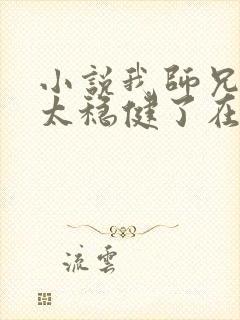 小説我師兄
太穩健了在
流雲